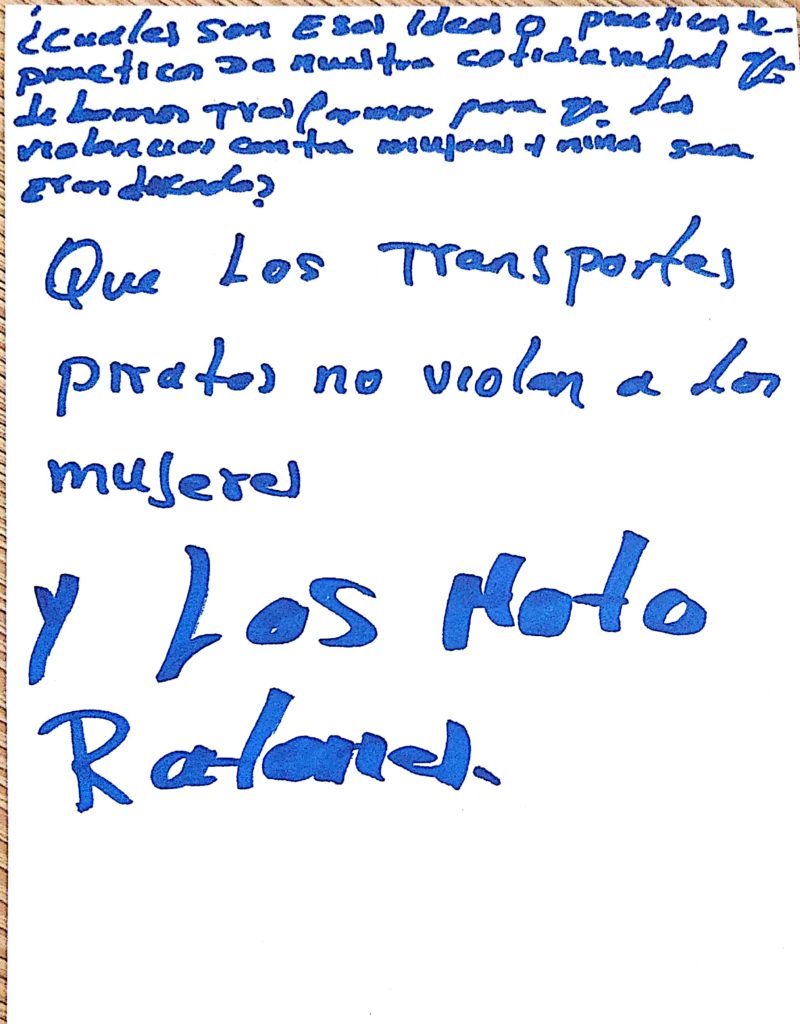 ¿Cuales son Esas Ideas o practicas de-
practicas De nuestra cotidianidad q.
debemos Trasformar para q. las
violencias contra mujeres y niñas sean
Erradicadas?
Que Los Transportes
piratas no violan a las
mujeres
Y Los Moto
Ratones.